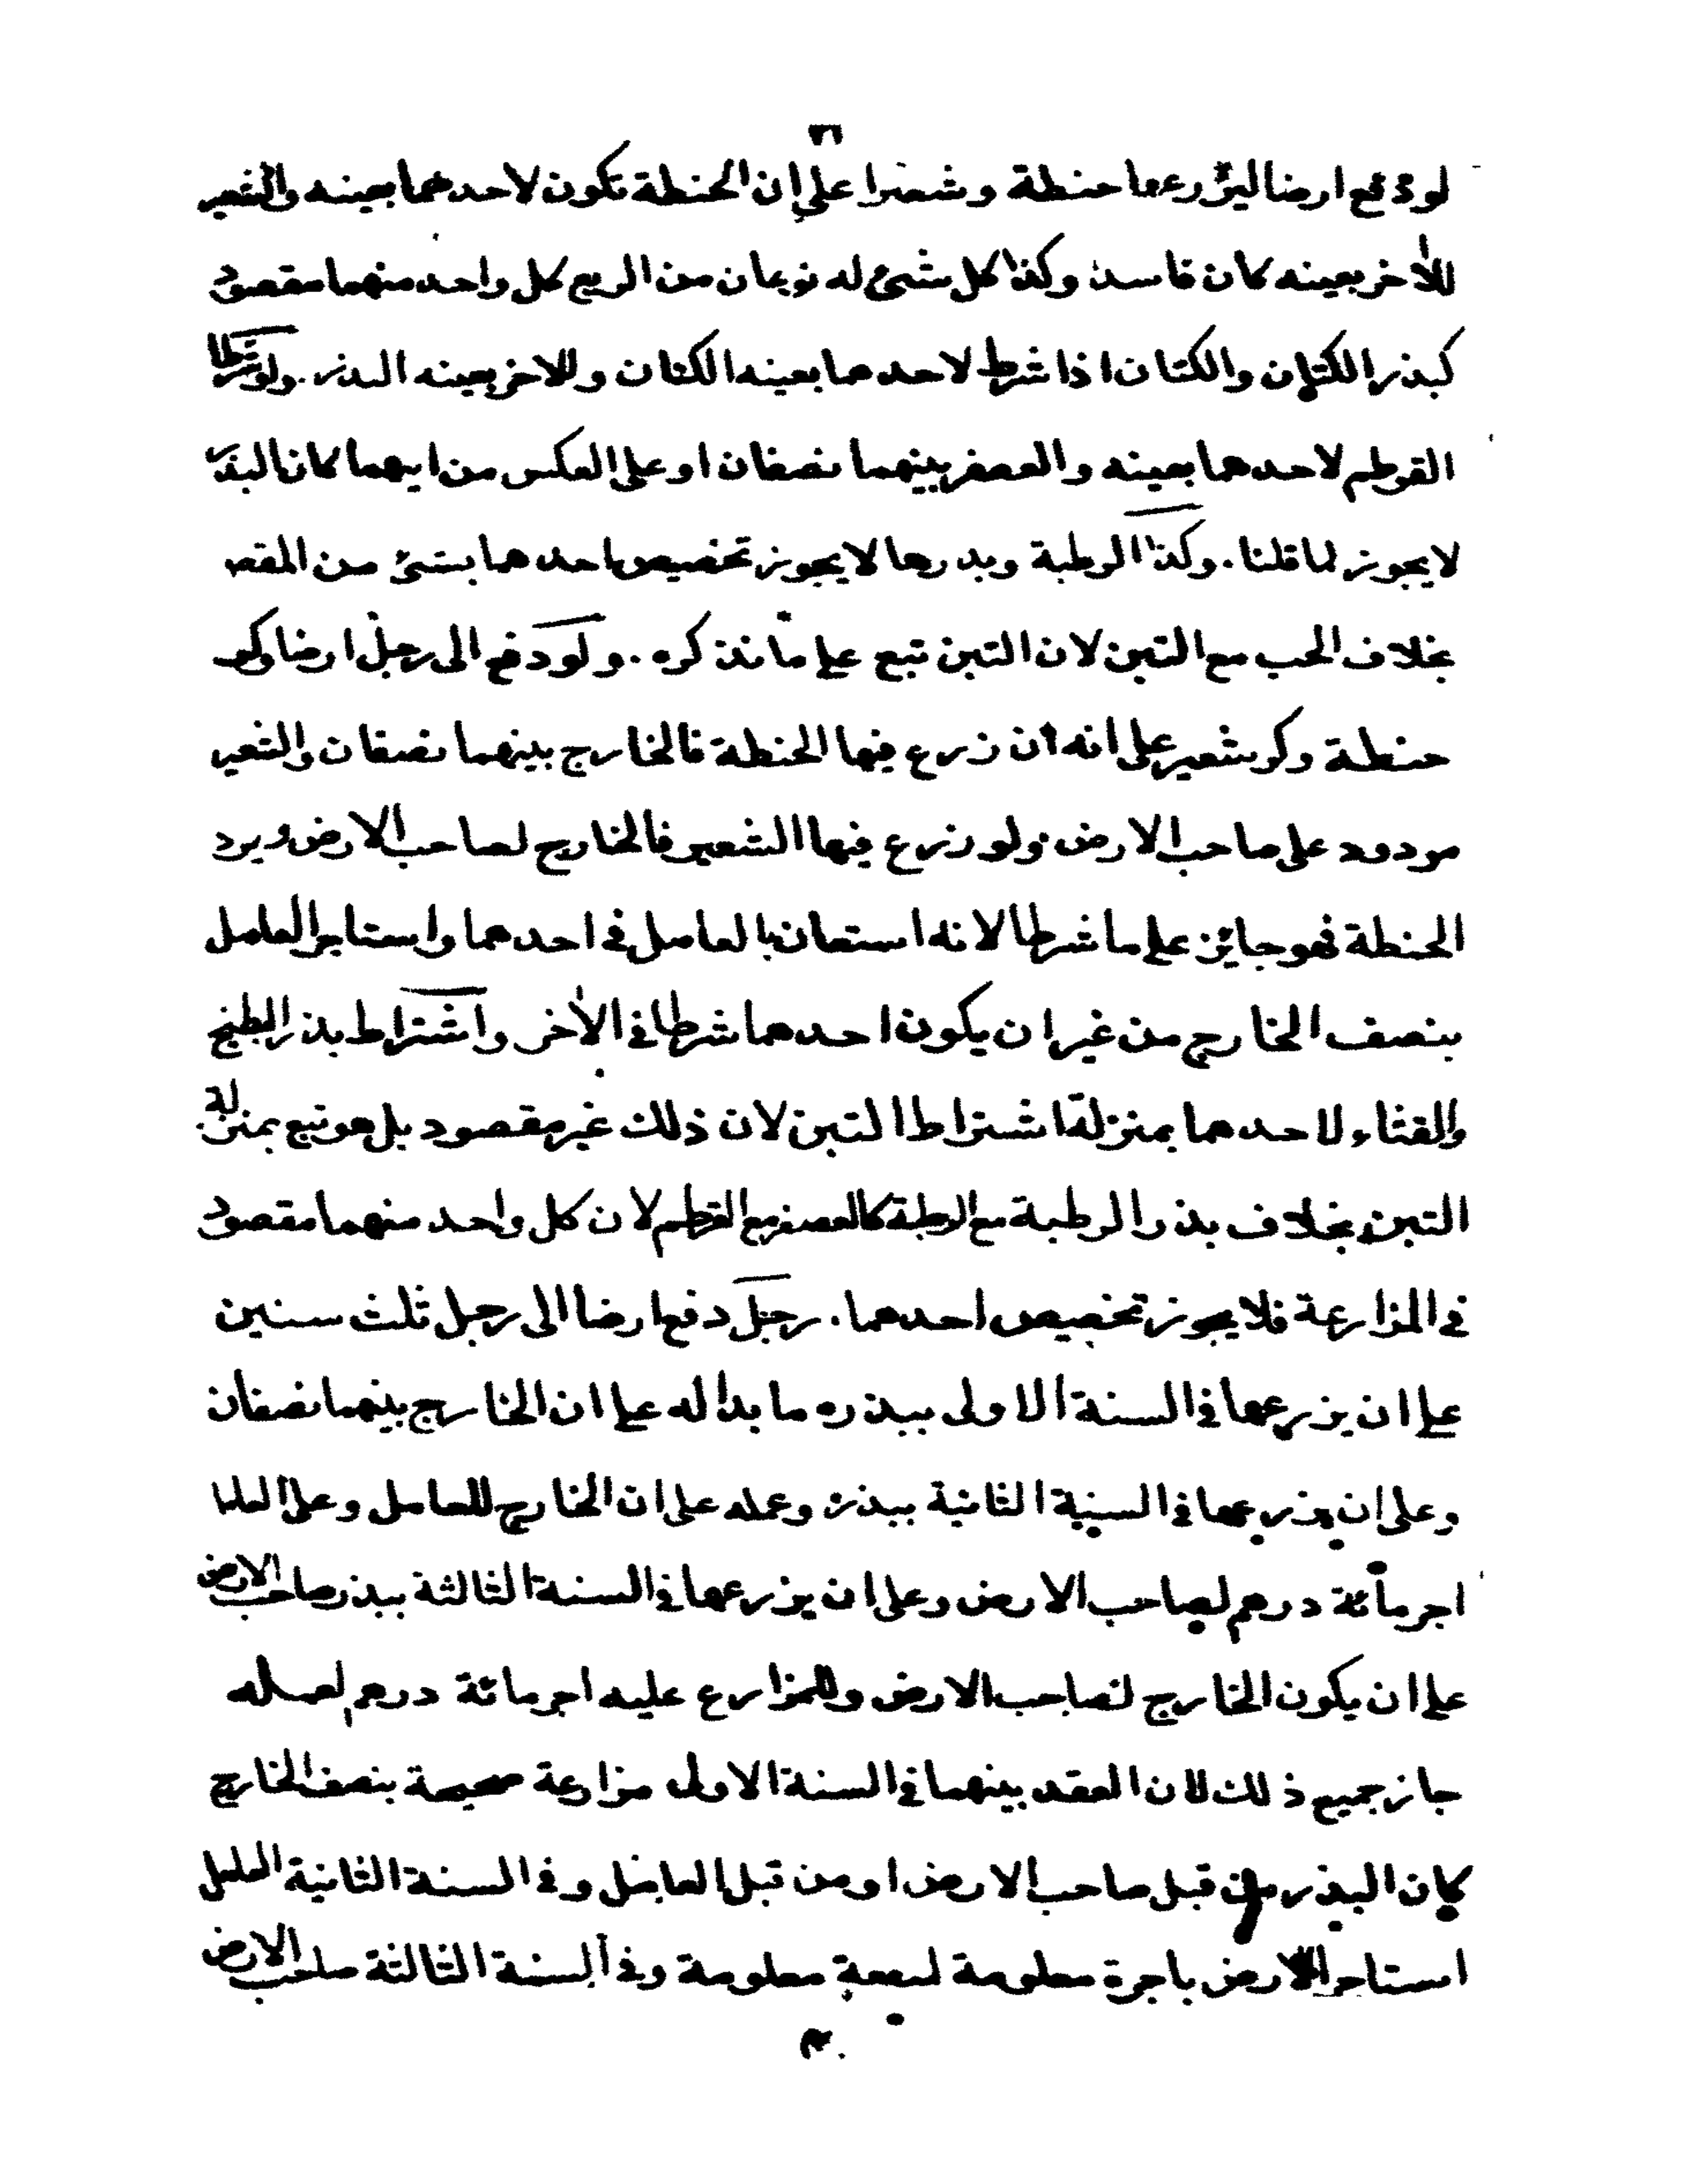 ٣٦
لو دفع ارضا ليزرعها حنطة وشعيرا على ان الحنطة تكون لاحدهما بعينه والشعير
للآخر بعينه كان فاسدا وكذا كل شئ له نوعان من الريع كل واحد منهما مقصود
كبذر الكتان والكتان اذا شرط لاحدهما بعينه الكتان وللاخر بعينه البذر. ولو شرطا
القرطم لاحدهما بعينه والعصفر بينهما نصفان او على العكس من ايهما كانا البذر
لا يجوز لما قلنا. وكذا الرطبة وبذرها لا يجوز تخصيص احدهما بشئ من المقصود
بخلاف الحب مع التبن لان التبن تبع على ما نذكره. ولو دفع الى رجل ارضا وكر
حنطة وكر شعير على انه ان زرع فيها الحنطة فالخارج بينهما نصفان والشعير
مردود على صاحب الارض ولو زرع فيها الشعير فالخارج لصاحب الارض ويرد
الحنطة فهو جايز على ما شرطا لانه استعان بالعامل في احدهما واستاجر العامل
بنصف الخارج من غير ان يكون احدهما شرطا في الآخر واشتراط بذر البطيخ
والقثاء لاحدهما بمنزلة اشتراط التبن لان ذلك غير مقصود بل هو تبع بمنزلة
التبن بخلاف بذر الرطبة مع الرطبة كالعصفر مع القرطم لان كل واحد منهما مقصود
في المزارعة فلا يجوز تخصيص احدهما. رجل دفع ارضا الى رجل ثلث سنين
على ان يزرعها في السنة الاولى ببذره ما بدا له على ان الخارج بينهما نصفان
وعلى ان يزرعها في السنة الثانية ببذره وعمله على ان الخارج للعامل وعلى العامل
اجر مائة درهم لصاحب الارض وعلى ان يزرعها في السنة الثالثة ببذر صاحب الارض
على ان يكون الخارج لصاحب الارض وللمزارع عليه اجر مائة درهم لعمله
جاز جميع ذلك لان العقد بينهما في السنة الاولى مزارعة صحيحة بنصف الخارج
كان البذر من قبل صاحب الارض او من قبل العامل وفي السنة الثانية العامل
استاجر الارض باجرة معلومة لمنفعة معلومة وفي السنة الثالثة صاحب الارض